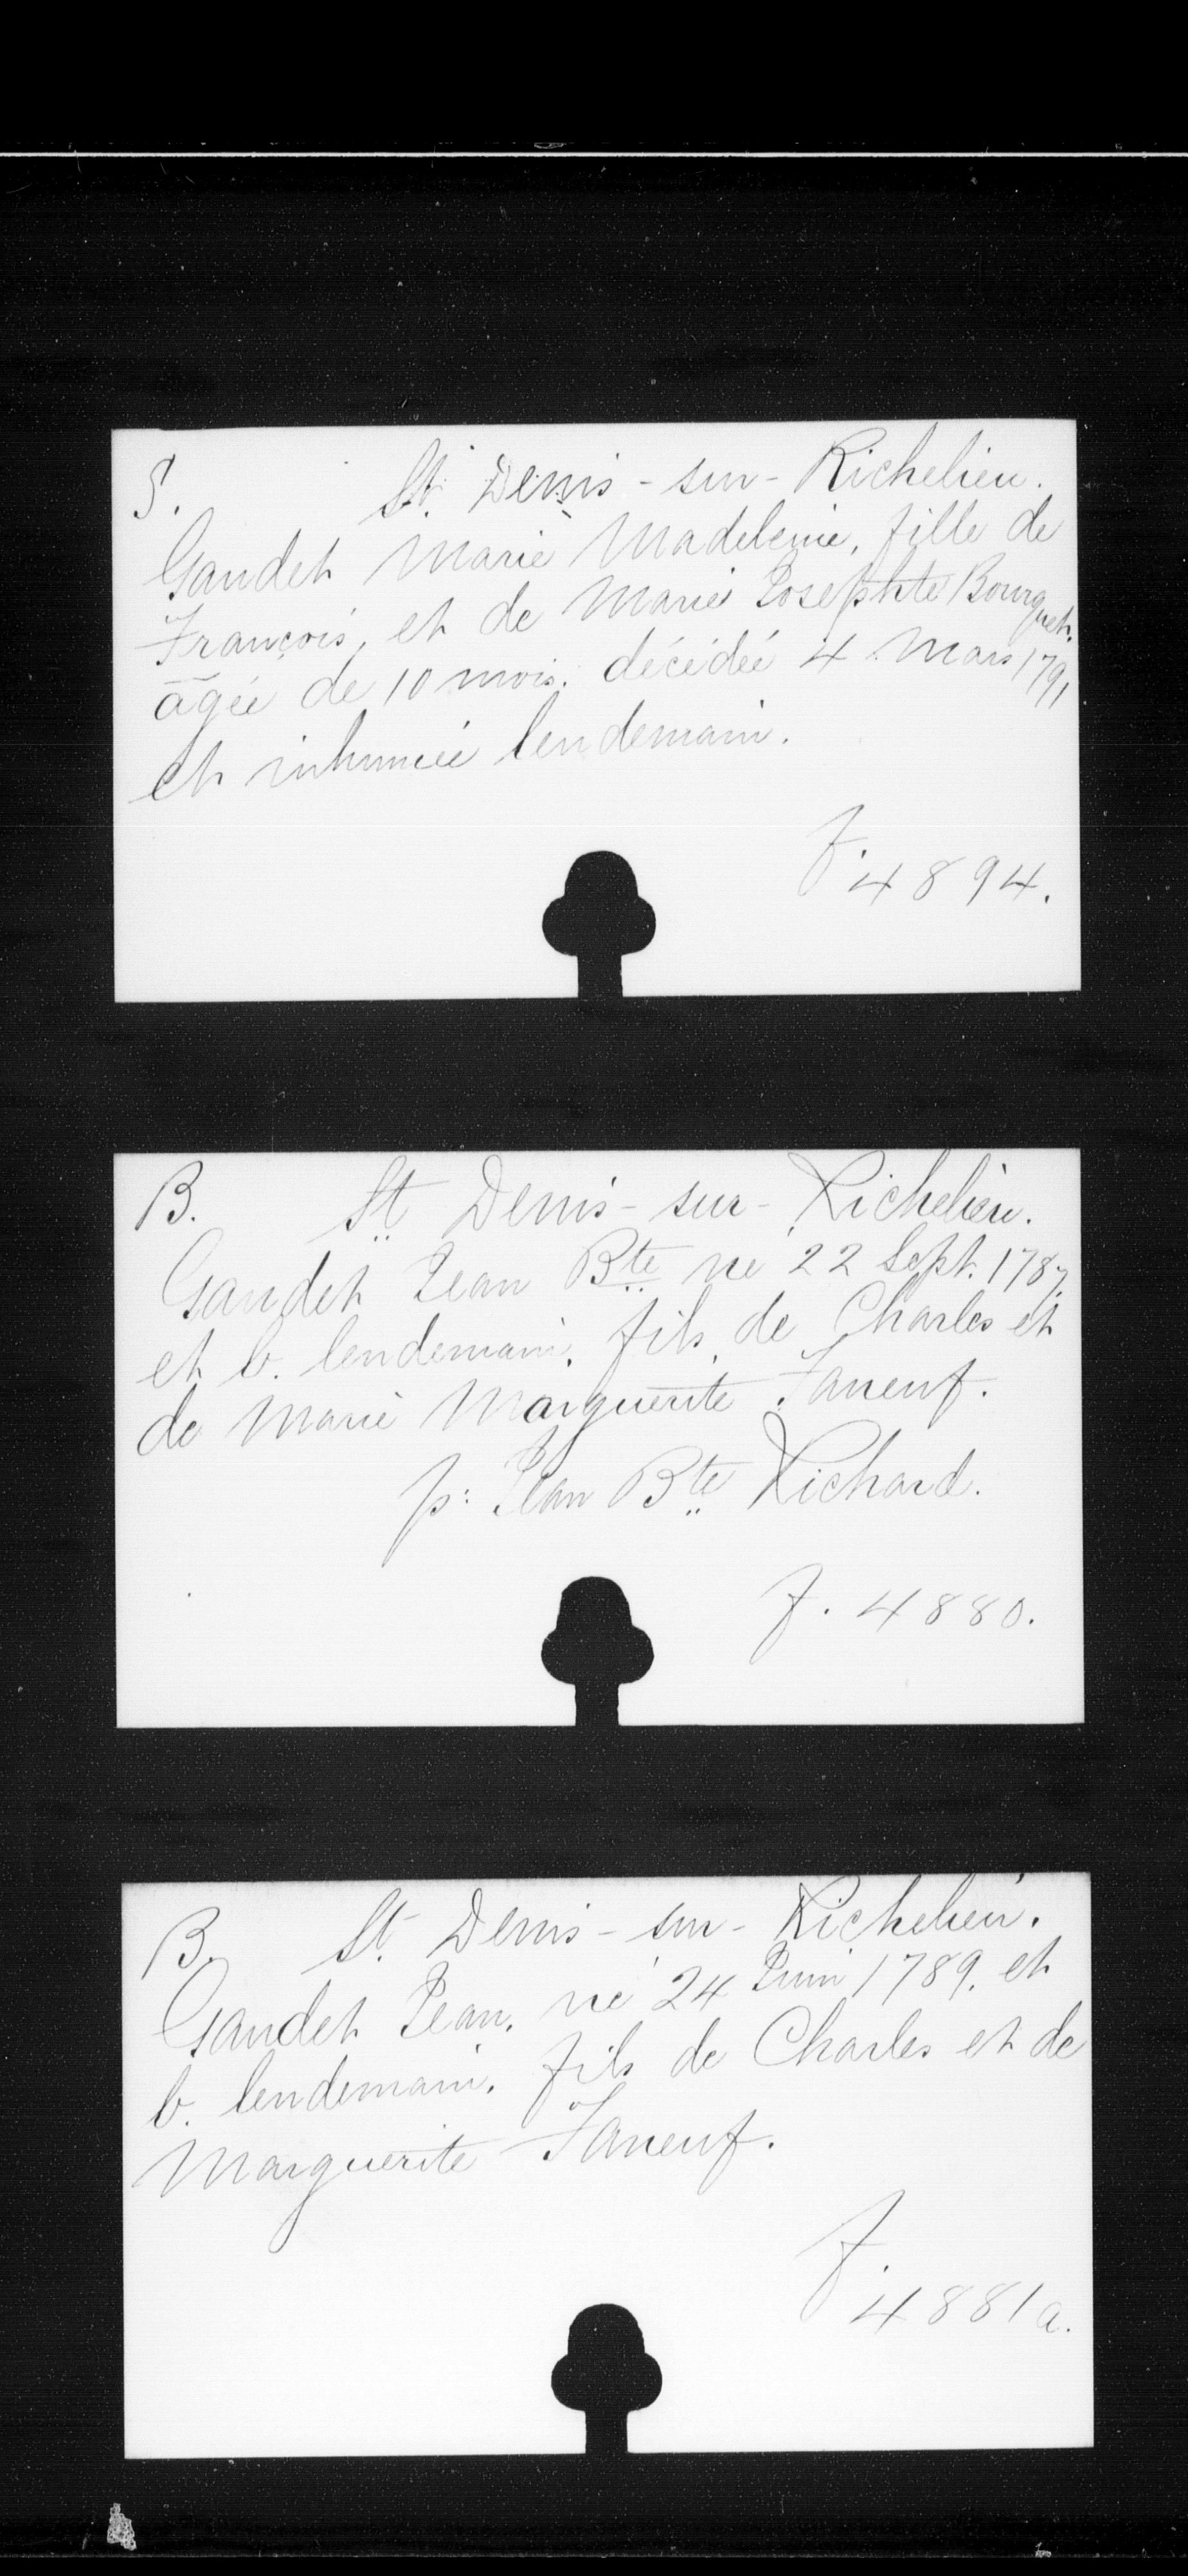 S. St. Denis-sur-Richelieu.
Gaudet Marie Madeleine, fille de
François, et de Marie Josephte Bourque
âgée de 10 mois. décédée 4 Mars 1791
et inhumée lendemain.
f. 4894.
B. St Denis-sur-Richelieu.
Gaudet Jean Bte né 22 Sept. 1787
et b. lendemain, fils de Charles et
de Marie Marguerite Faneuf.
p: Jean Bte Richard.
f. 4880.
B. St Denis-sur-Richelieu.
Gaudet Jean, né 24 Juin 1789. et
b. lendemain, fils de Charles et de
Marguerite Faneuf.
f. 4881a.